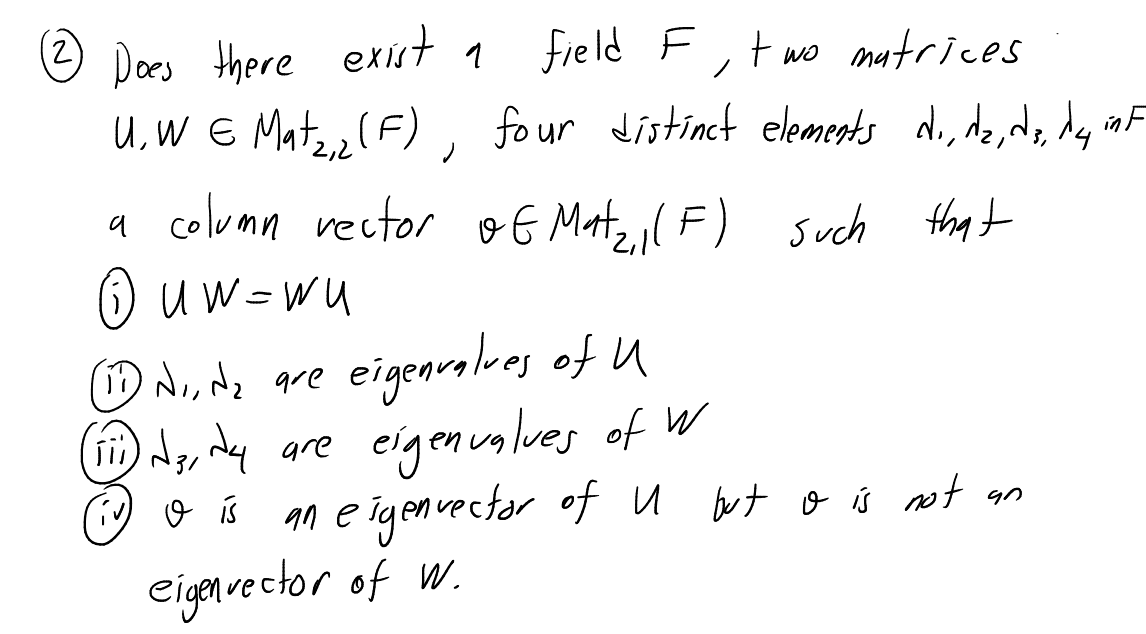 ② Does there exist a field F, two matrices
U, W ∈ Mat₂,₂(F), four distinct elements λ₁, λ₂, λ₃, λ₄ in F
a column vector v ∈ Mat₂,₁(F) such that
ⓘ UW = WU
ⓘⓘ λ₁, λ₂ are eigenvalues of U
ⓘⓘⓘ λ₃, λ₄ are eigenvalues of W
ⓘⓥ v is an eigenvector of U but v is not an
eigenvector of W.